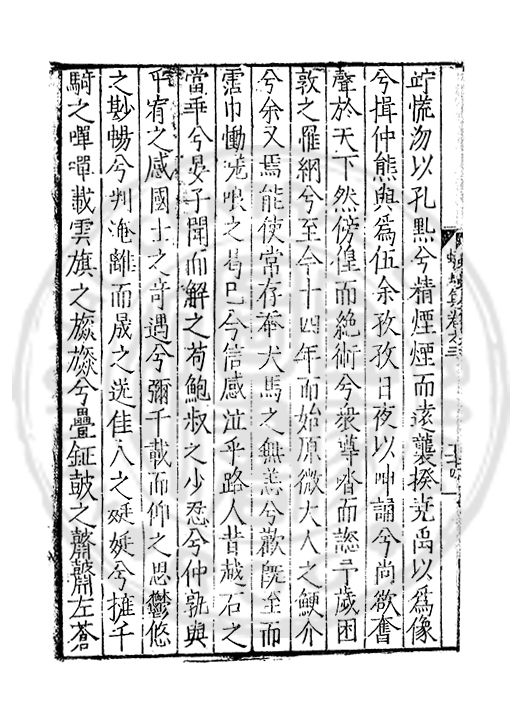 竚慌沕以孔㸃兮精煙煙而遠襲揆堯禹以爲像
兮揖仲熊與爲伍余孜孜日夜以呻誦兮尚欲奮
聲於天下然傍偟而絶術兮衆沓而予歲困
敦之罹網兮至今十四年而始原微大人之鯁介
兮余又焉能使常存奉犬馬之無恙兮歡旣至而
霑巾慟之曷巳兮信感泣乎路人昔越石之
當乖兮晏子聞而解之苟鮑叔之少忍兮仲孰與
乎宥之感國士之竒遇兮彌千載而仰之思鬱悠
之尠暢兮判淹離而晟之佳人之娗兮擁千
騎之嘽嘽載雲旗之兮疊鉦鼓之鼘鼘左蒼
蠛蠓集卷之三